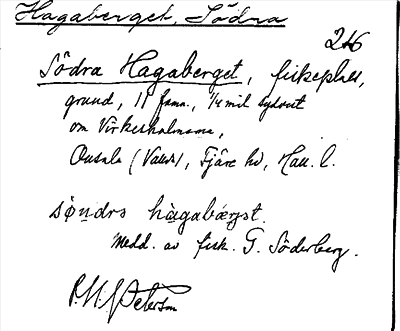 Hagaberget, Södra
246
Södra Hagaberget, fiskeplats,
grund, 11 famn., 1/4 mil sydvest
om Virkesholmarna,
Onsala (Vallda), Fjäre hd, Hall. l.
sø̀ndrs hàgabærgst.
Medd. av fisk. G. Söderberg.
Peterson